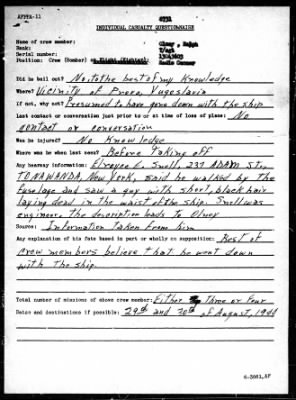 AFPPA-11
INDIVIDUAL CASUALTY QUESTIONNAIRE
Name of crew member: Olney, Ralph
Rank:
Serial number:
Position: Crew (Bomber) or Flight (Fighter):
Did he bail out? No, to the best of my Knowledge
Where? Vicinity of Vugoslavia
If not, why not? Presumed to have gone down with the ship
Last contact or conversation just prior to or at time of loss of plane: No
contact or conversation
Was he injured? No Knowledge
Where was he when last seen? Before taking off
Any hearsay information: E. Snell, 237 ADAM St.,
TONAWANDA, New York, said he walked by the
fuselage and saw a guy with short, black hair
laying dead in the waist of the ship. Snell was
engineer. the description leads to Olney
Source: Information Taken From him
Any explanation of his fate based in part or wholly on supposition: Best of
crew members believe that he went down
with The ship.
Total number of missions of above crew member: Either Three or Four
Dates and destinations if possible: 29th and 30th of August, 1944
6-3861,AF